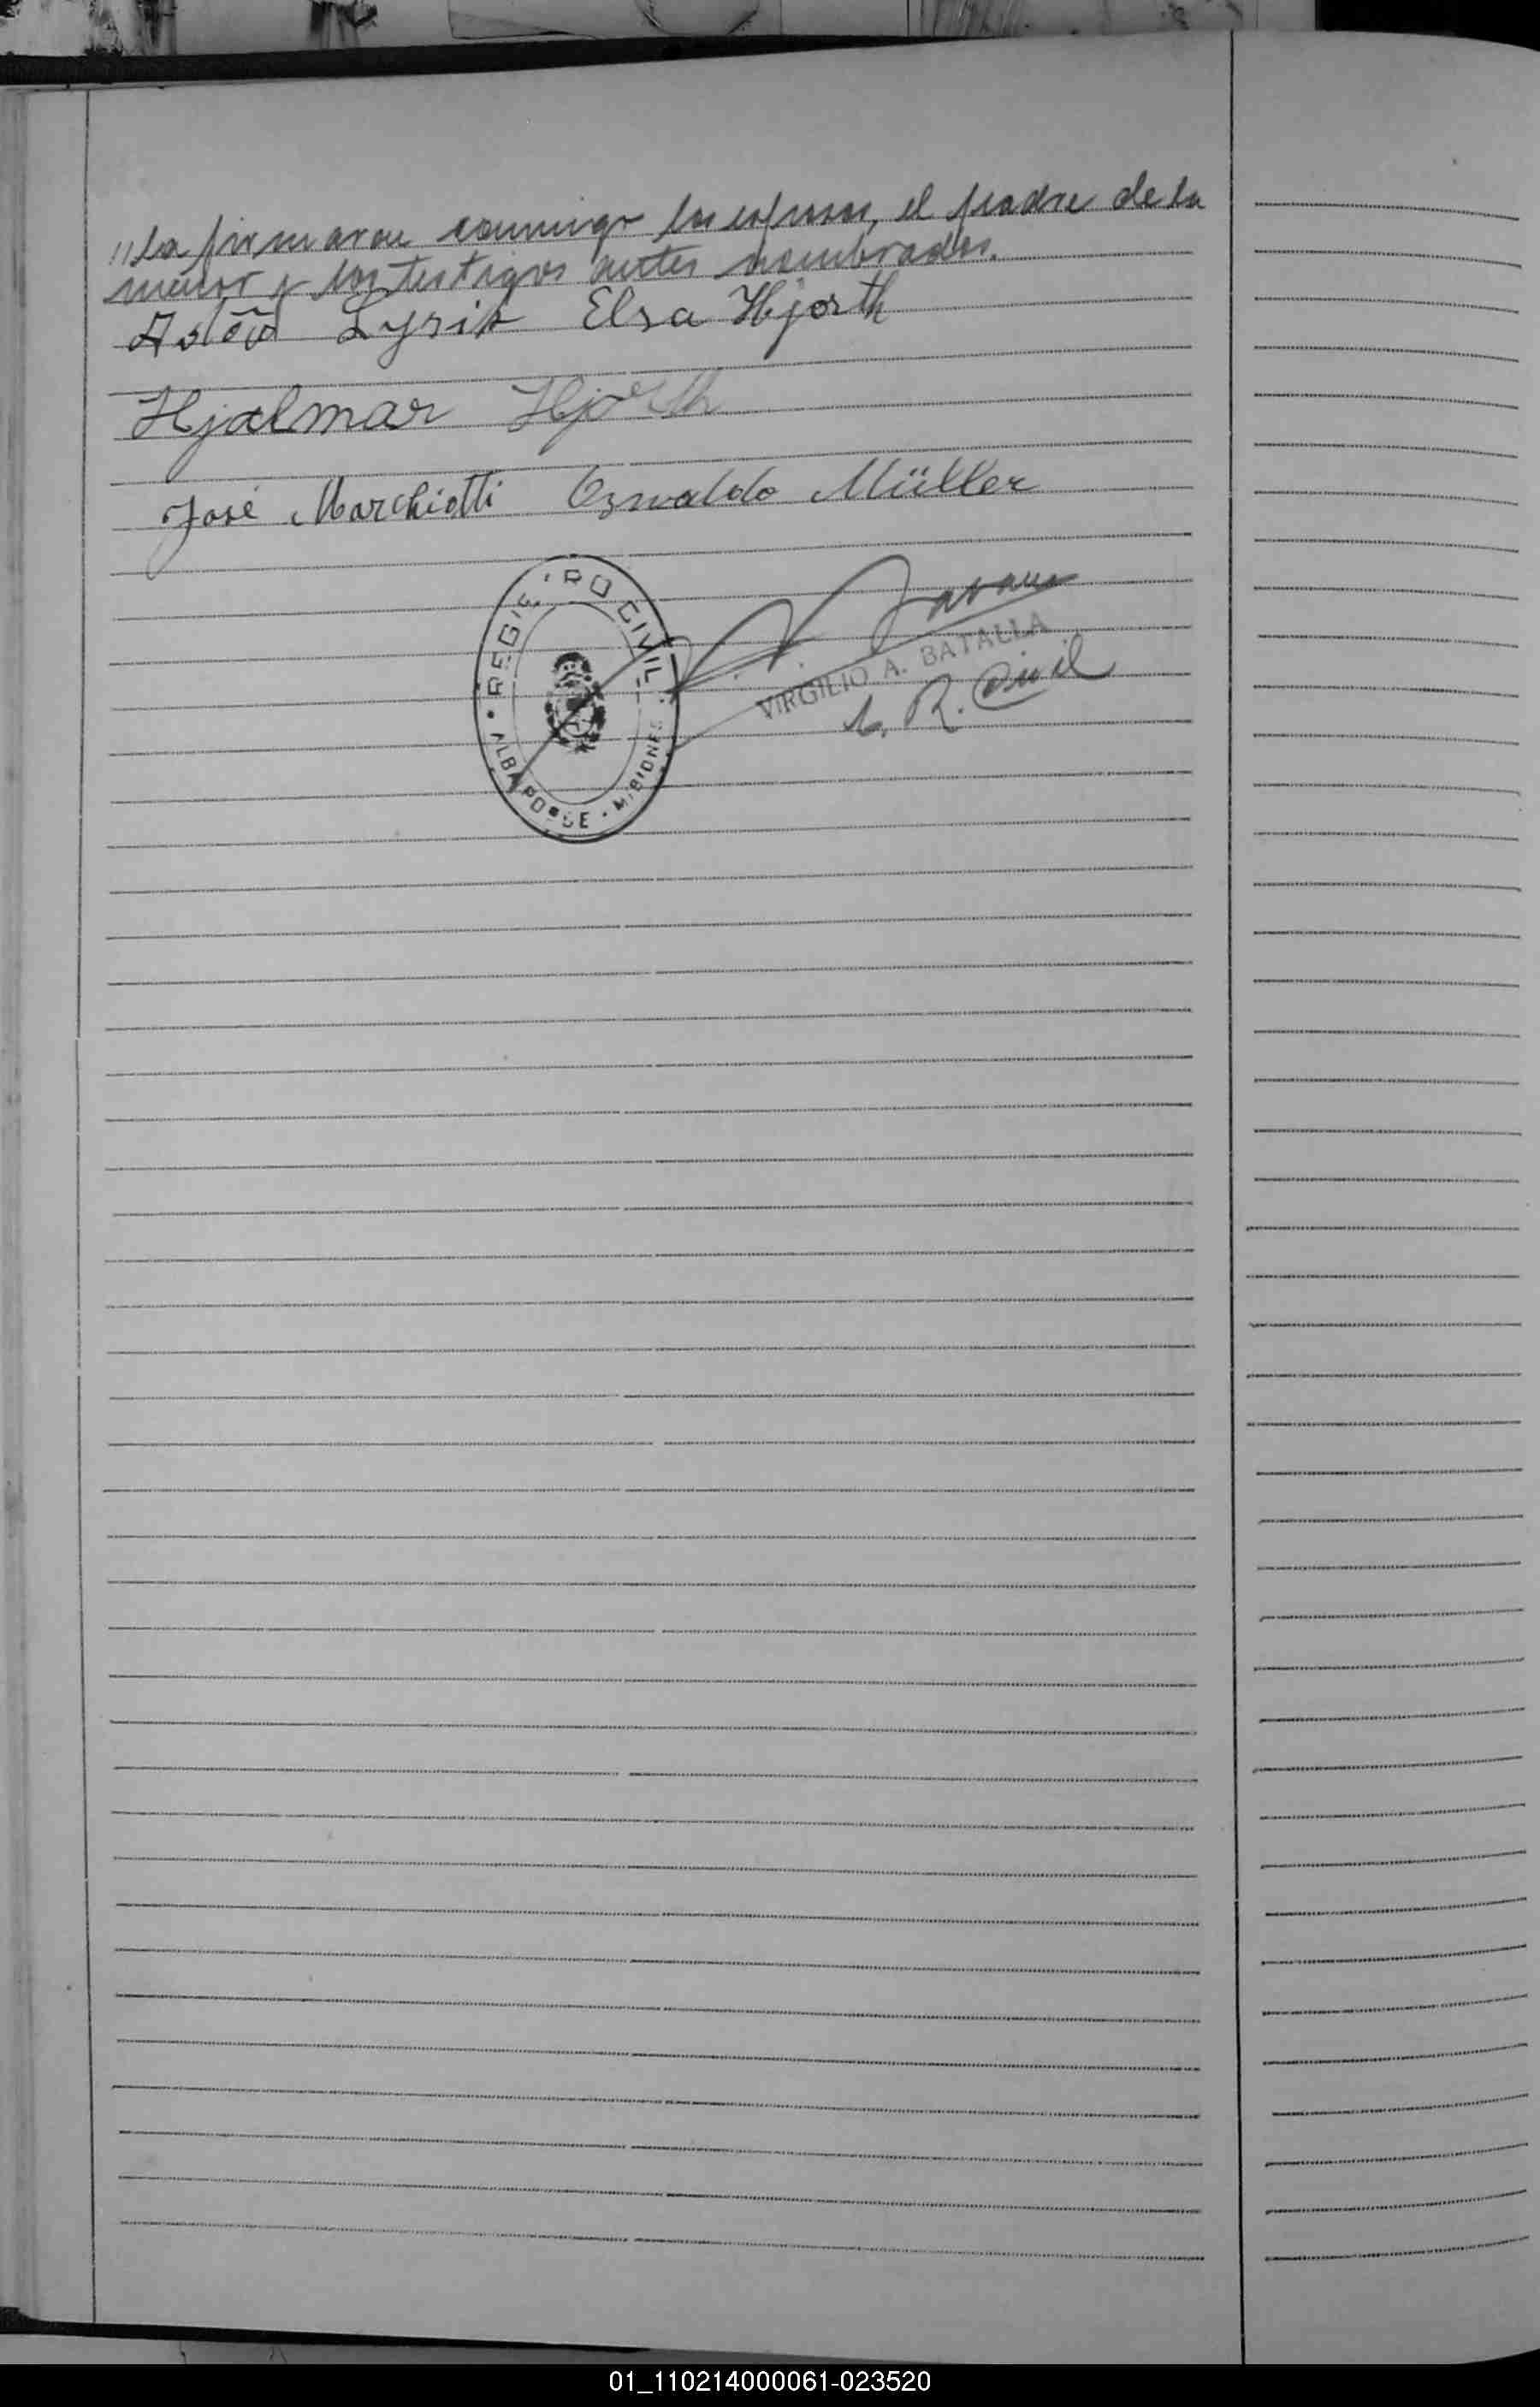 "la firmaron conmigo los esposos, el padre de la
menor y los testigos antes nombrados.
Lysik Elsa Hjorth
Hjalmar Hjorth
José Marchiotti Osvaldo Müller
REGISTRO CIVIL
ALBA POSSE • MISIONES
VIRGILIO A. BATALLA
R. Civil
01_110214000061-023520